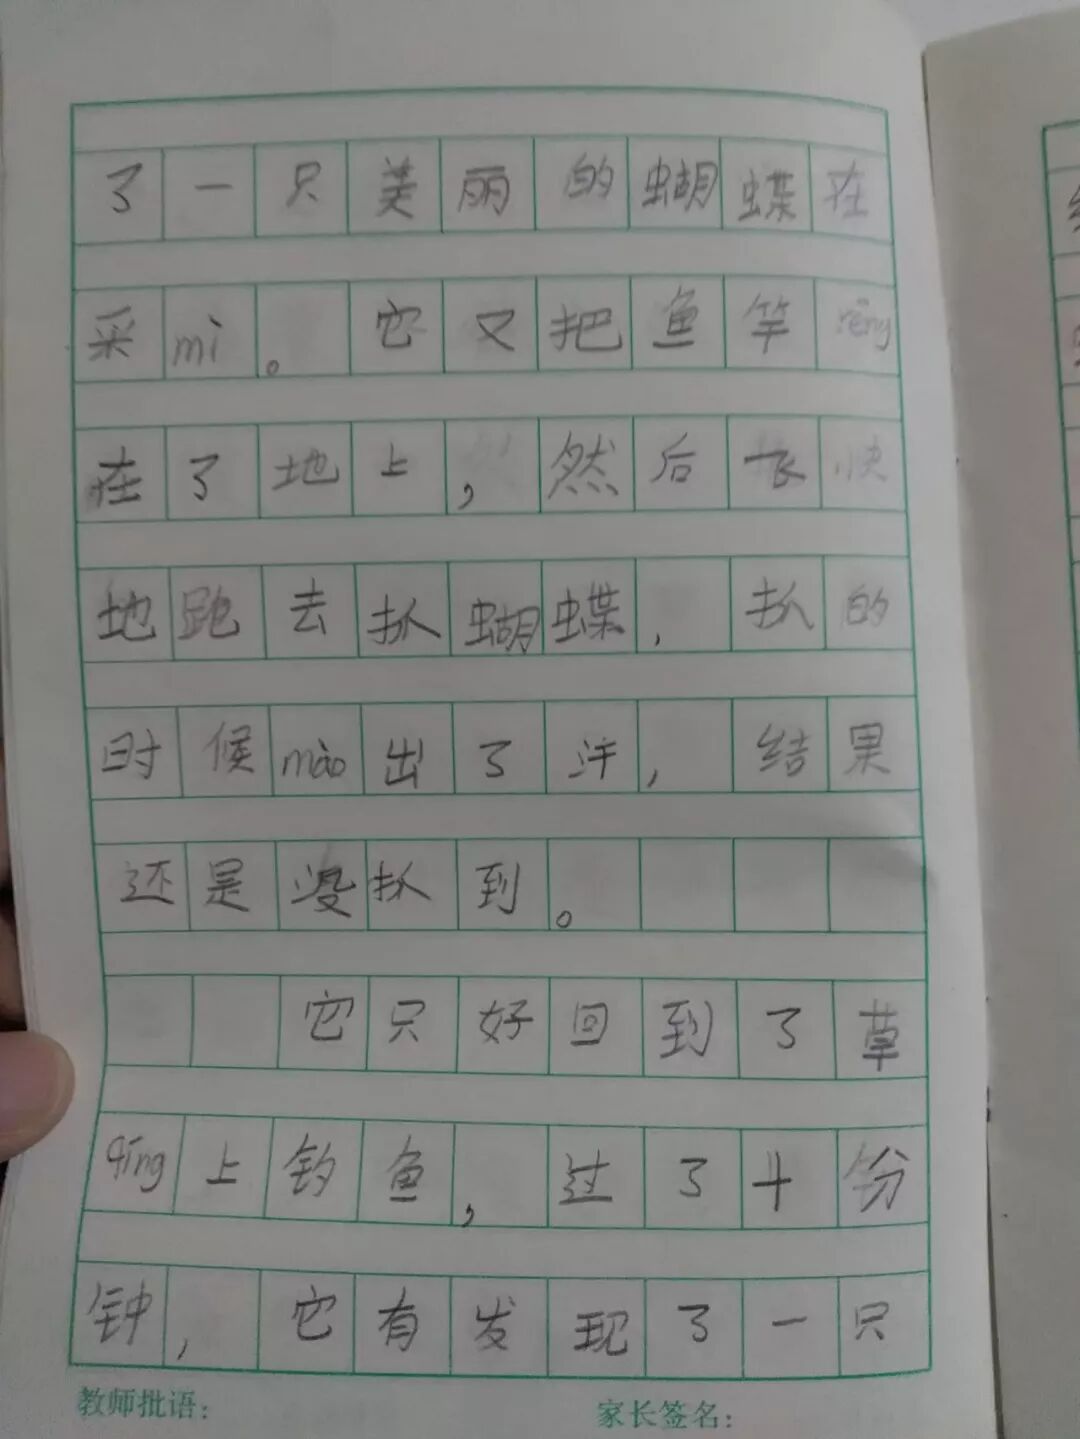 了一只美丽的蝴蝶在
采mì。它又把鱼竿rēng
在了地上，然后飞快
地跑去扒蝴蝶，扒的
时候mào出了汗，结果
还是没扒到。
它只好回到了草
qíng上钓鱼，过了十分
钟，它有发现了一只
教师批语：
家长签名：